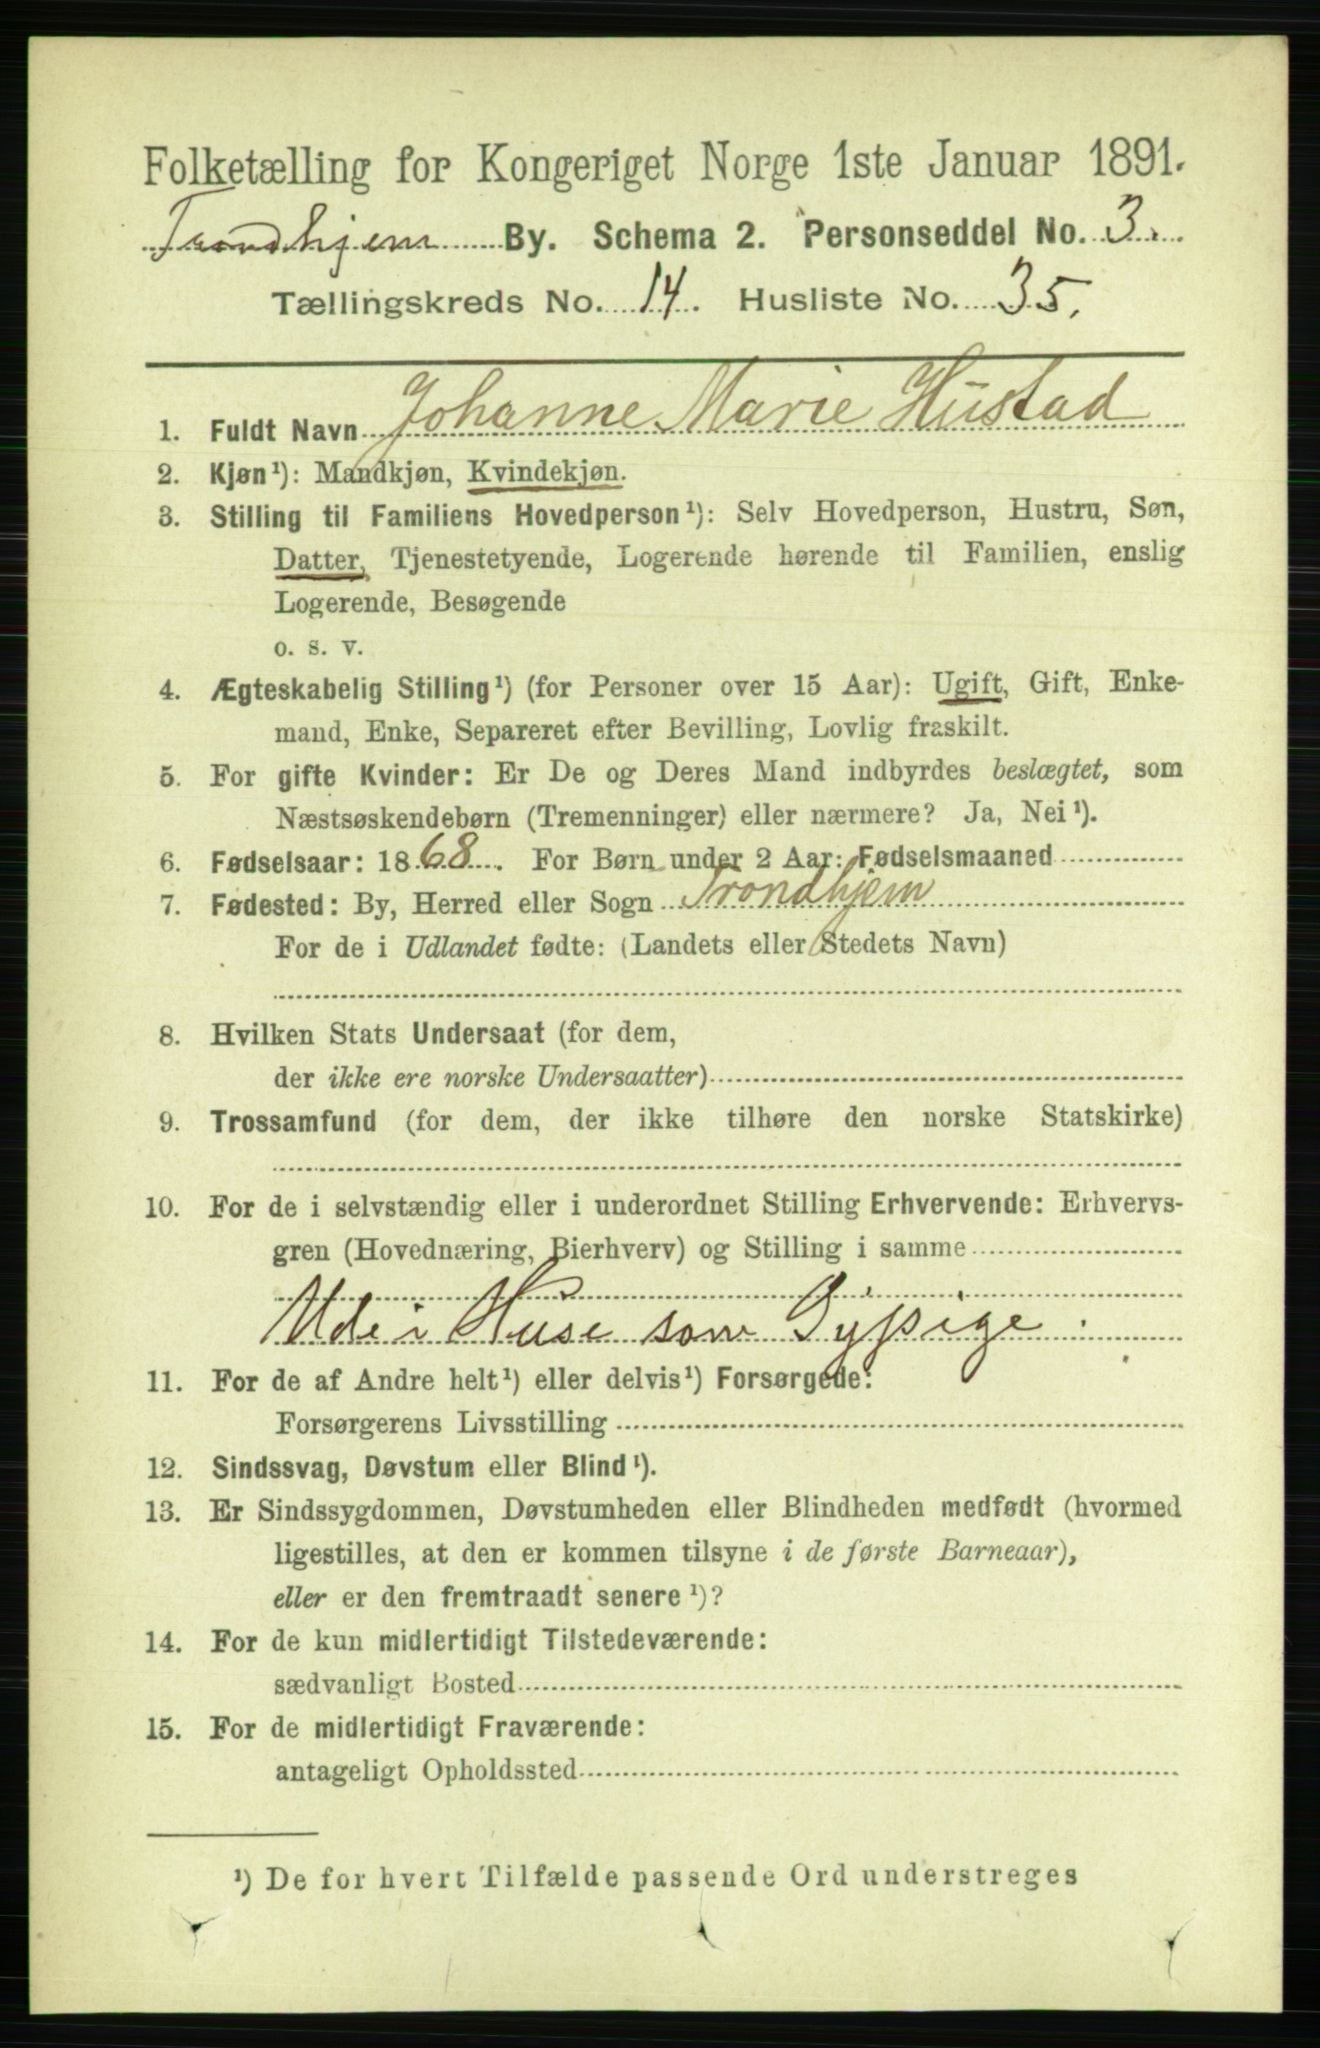 Folketælling for Kongeriget Norge 1ste Januar 1891.
Trondhjem By. Schema 2. Personseddel No. 3.
Tællingskreds No. 14. Husliste No. 35.
1. Fuldt Navn Johanne Marie Hustad
2. Kjøn¹): Mandkjøn, Kvindekjøn.
3. Stilling til Familiens Hovedperson¹): Selv Hovedperson, Hustru, Søn,
Datter, Tjenestetyende, Logerende hørende til Familien, enslig
Logerende, Besøgende
o. s. v.
4. Ægteskabelig Stilling¹) (for Personer over 15 Aar): Ugift, Gift, Enke-
mand, Enke, Separeret efter Bevilling, Lovlig fraskilt.
5. For gifte Kvinder: Er De og Deres Mand indbyrdes beslægtet, som
Næstsøskendebørn (Tremenninger) eller nærmere? Ja, Nei¹).
6. Fødselsaar: 1868. For Børn under 2 Aar: Fødselsmaaned
7. Fødested: By, Herred eller Sogn Trondhjem
For de i Udlandet fødte: (Landets eller Stedets Navn)
8. Hvilken Stats Undersaat (for dem,
der ikke ere norske Undersaatter)
9. Trossamfund (for dem, der ikke tilhøre den norske Statskirke)
10. For de i selvstændig eller i underordnet Stilling Erhvervende: Erhvervs-
gren (Hovednæring, Bierhverv) og Stilling i samme
Ude i Huse som Sypige.
11. For de af Andre helt¹) eller delvis¹) Forsørgede:
Forsørgerens Livsstilling
12. Sindssvag, Døvstum eller Blind¹).
13. Er Sindssygdommen, Døvstumheden eller Blindheden medfødt (hvormed
ligestilles, at den er kommen tilsyne i de første Barneaar),
eller er den fremtraadt senere¹)?
14. For de kun midlertidigt Tilstedeværende:
sædvanligt Bosted
15. For de midlertidigt Fraværende:
antageligt Opholdssted
¹) De for hvert Tilfælde passende Ord understreges